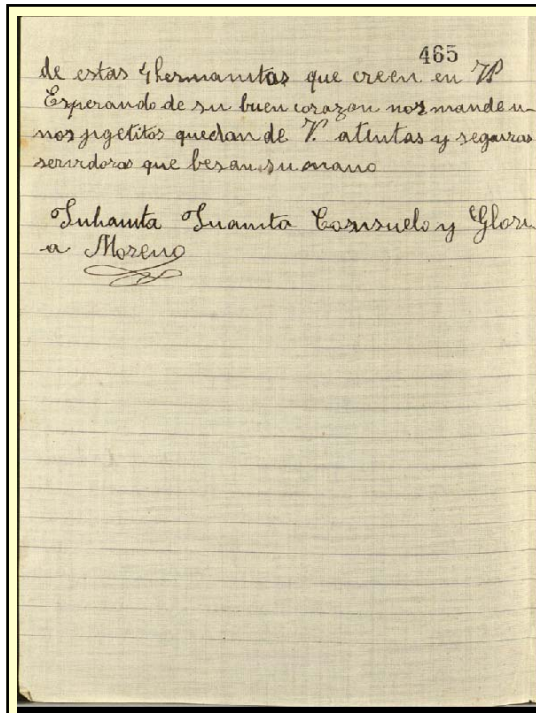 465
de estas 4 hermanitas que creen en V.
Esperando de su buen corazon nos mande u-
nos jugetitos quedan de V. atentas y seguras
servidoras que besan su mano
Juanita Consuelo y Glori
a Moreno